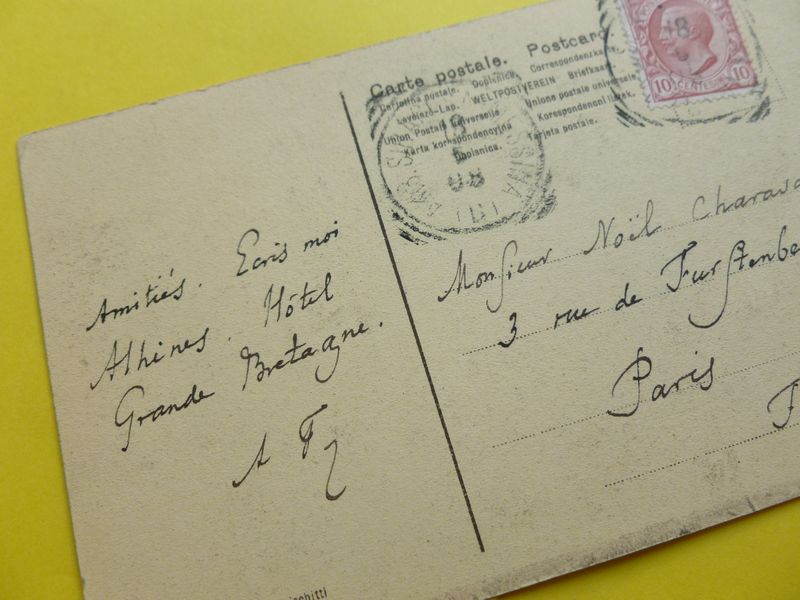 Carte postale. Postcard.
Cartolina postale. Dopisnica. Correspondenzkarte
Levelező-Lap. WELTPOSTVEREIN Briefkaart
Union Postale Universelle Unione postale universale
Karta korespondencyjna Korespondenční lístek.
Dopisnica. Tarjeta postale.
10 CENTESIMI 10
Amitiés. Ecris moi
Athènes. Hôtel
Grande Bretagne.
A F
Monsieur Noël Charava
3 rue de Furstenbe
Paris
F